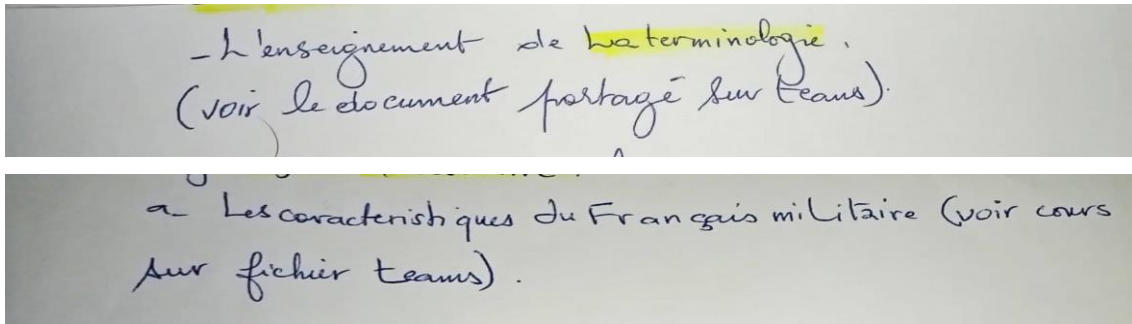 - L'enseignement de La terminologie.
(voir le document partagé sur teams).
a- Les caracteristiques du Français militaire (voir cours
sur fichier teams).